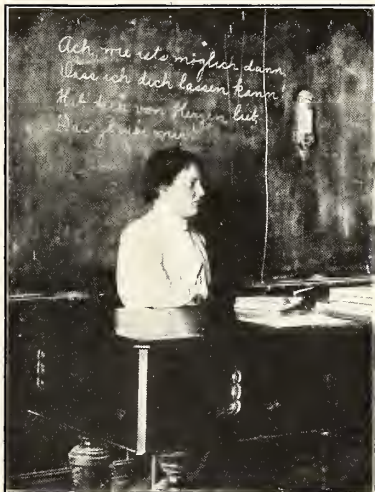 Ach, wie ists möglich dann,
Dass ich dich lassen kann!
Hab dich von Herzen lieb,
Das glaube mir!